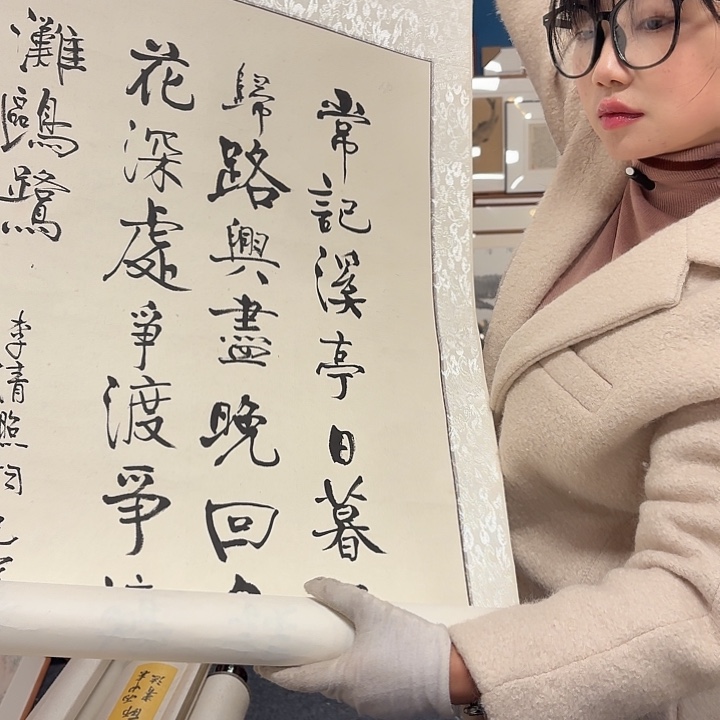 常記溪亭日暮
歸路興盡晚回
花深處爭渡爭
灘鷗鷺
李清照